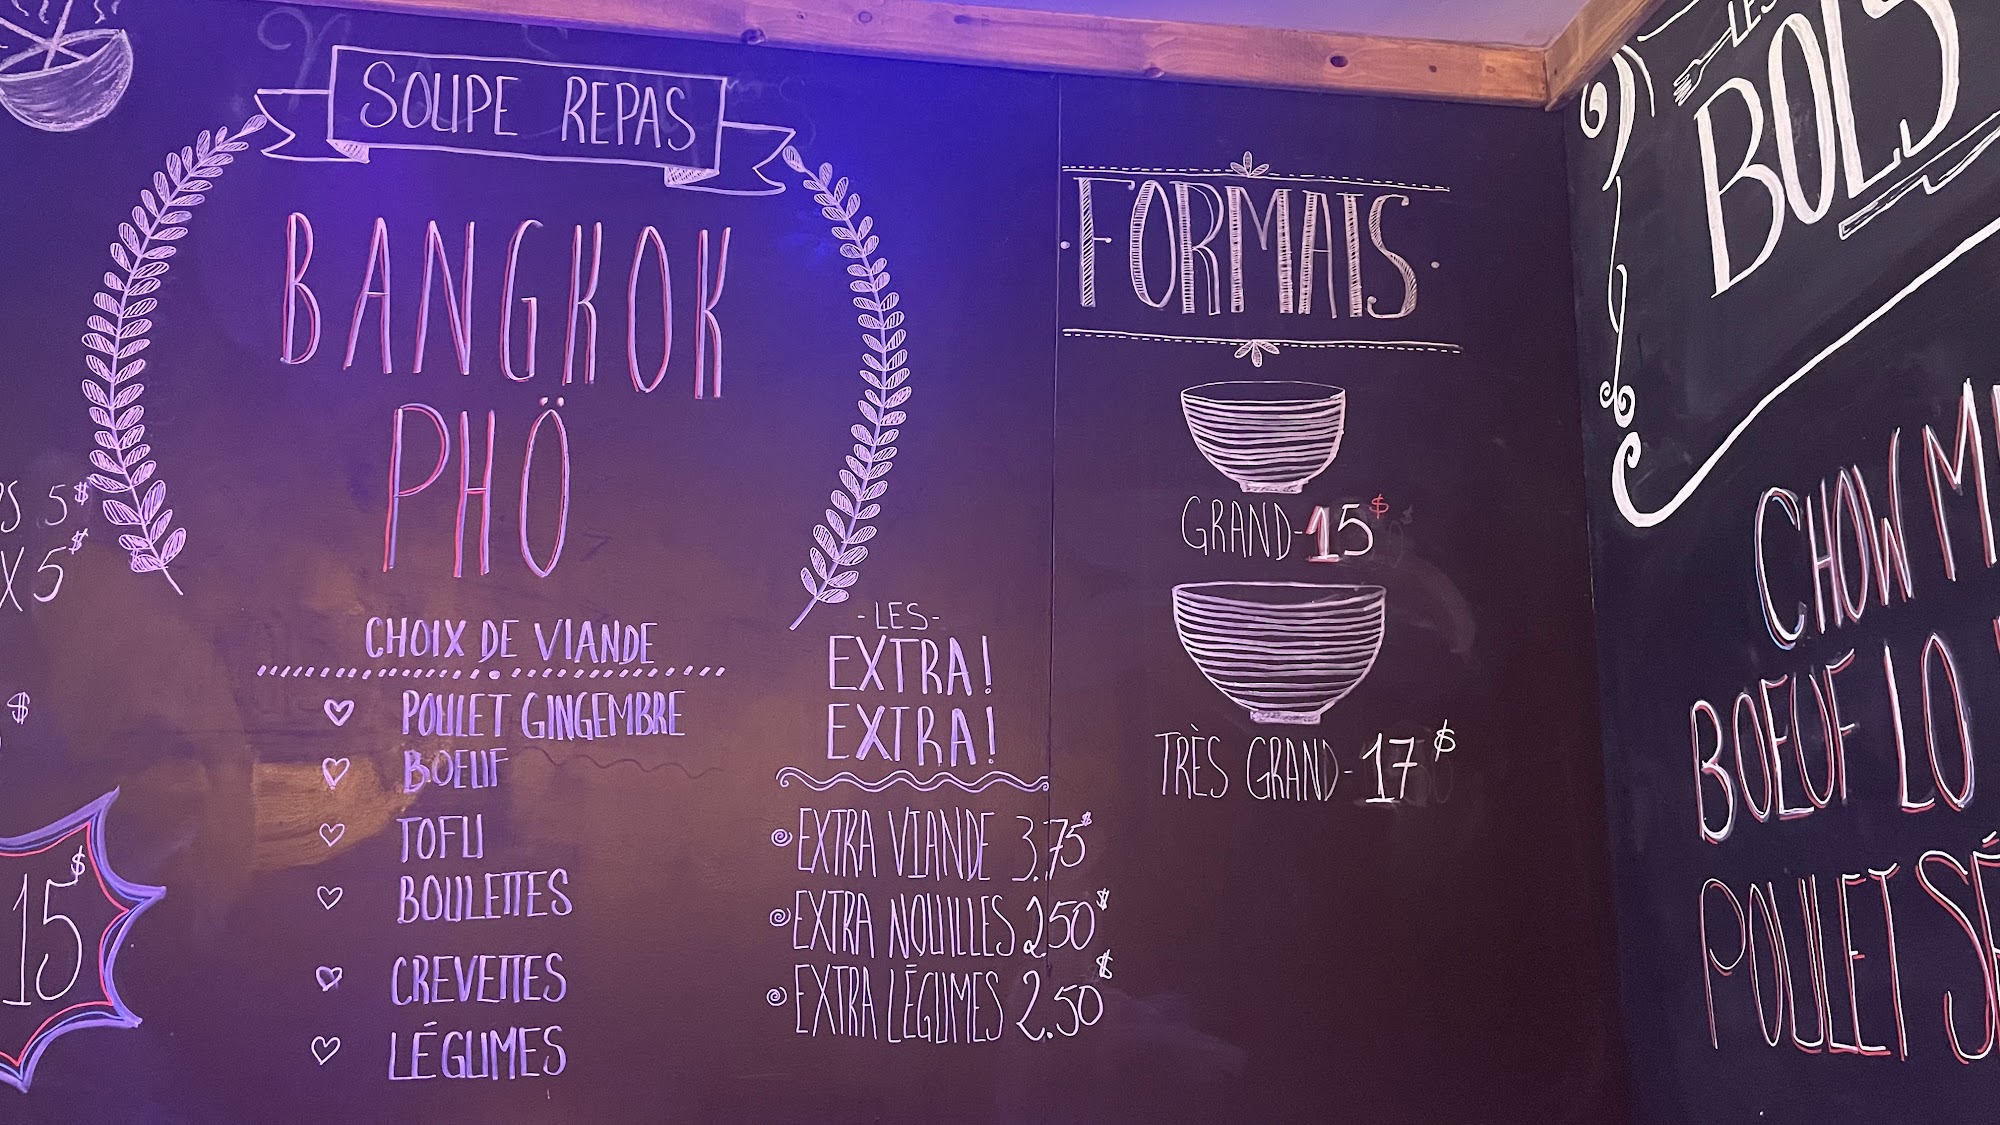 SOUPE REPAS
BANGKOK
PHÖ
CHOIX DE VIANDE
POULET GINGEMBRE
BOEUF
TOFU
BOULETTES
CREVETTES
LÉGUMES
5$
X 5$
$
15$
- LES -
EXTRA!
EXTRA!
EXTRA VIANDE 3.75$
EXTRA NOUILLES 2.50$
EXTRA LÉGUMES 2.50$
FORMATS
GRAND - 15$
TRÈS GRAND - 17$
LES
BOLS
CHOW M
BOEUF LO
POULET SÉ